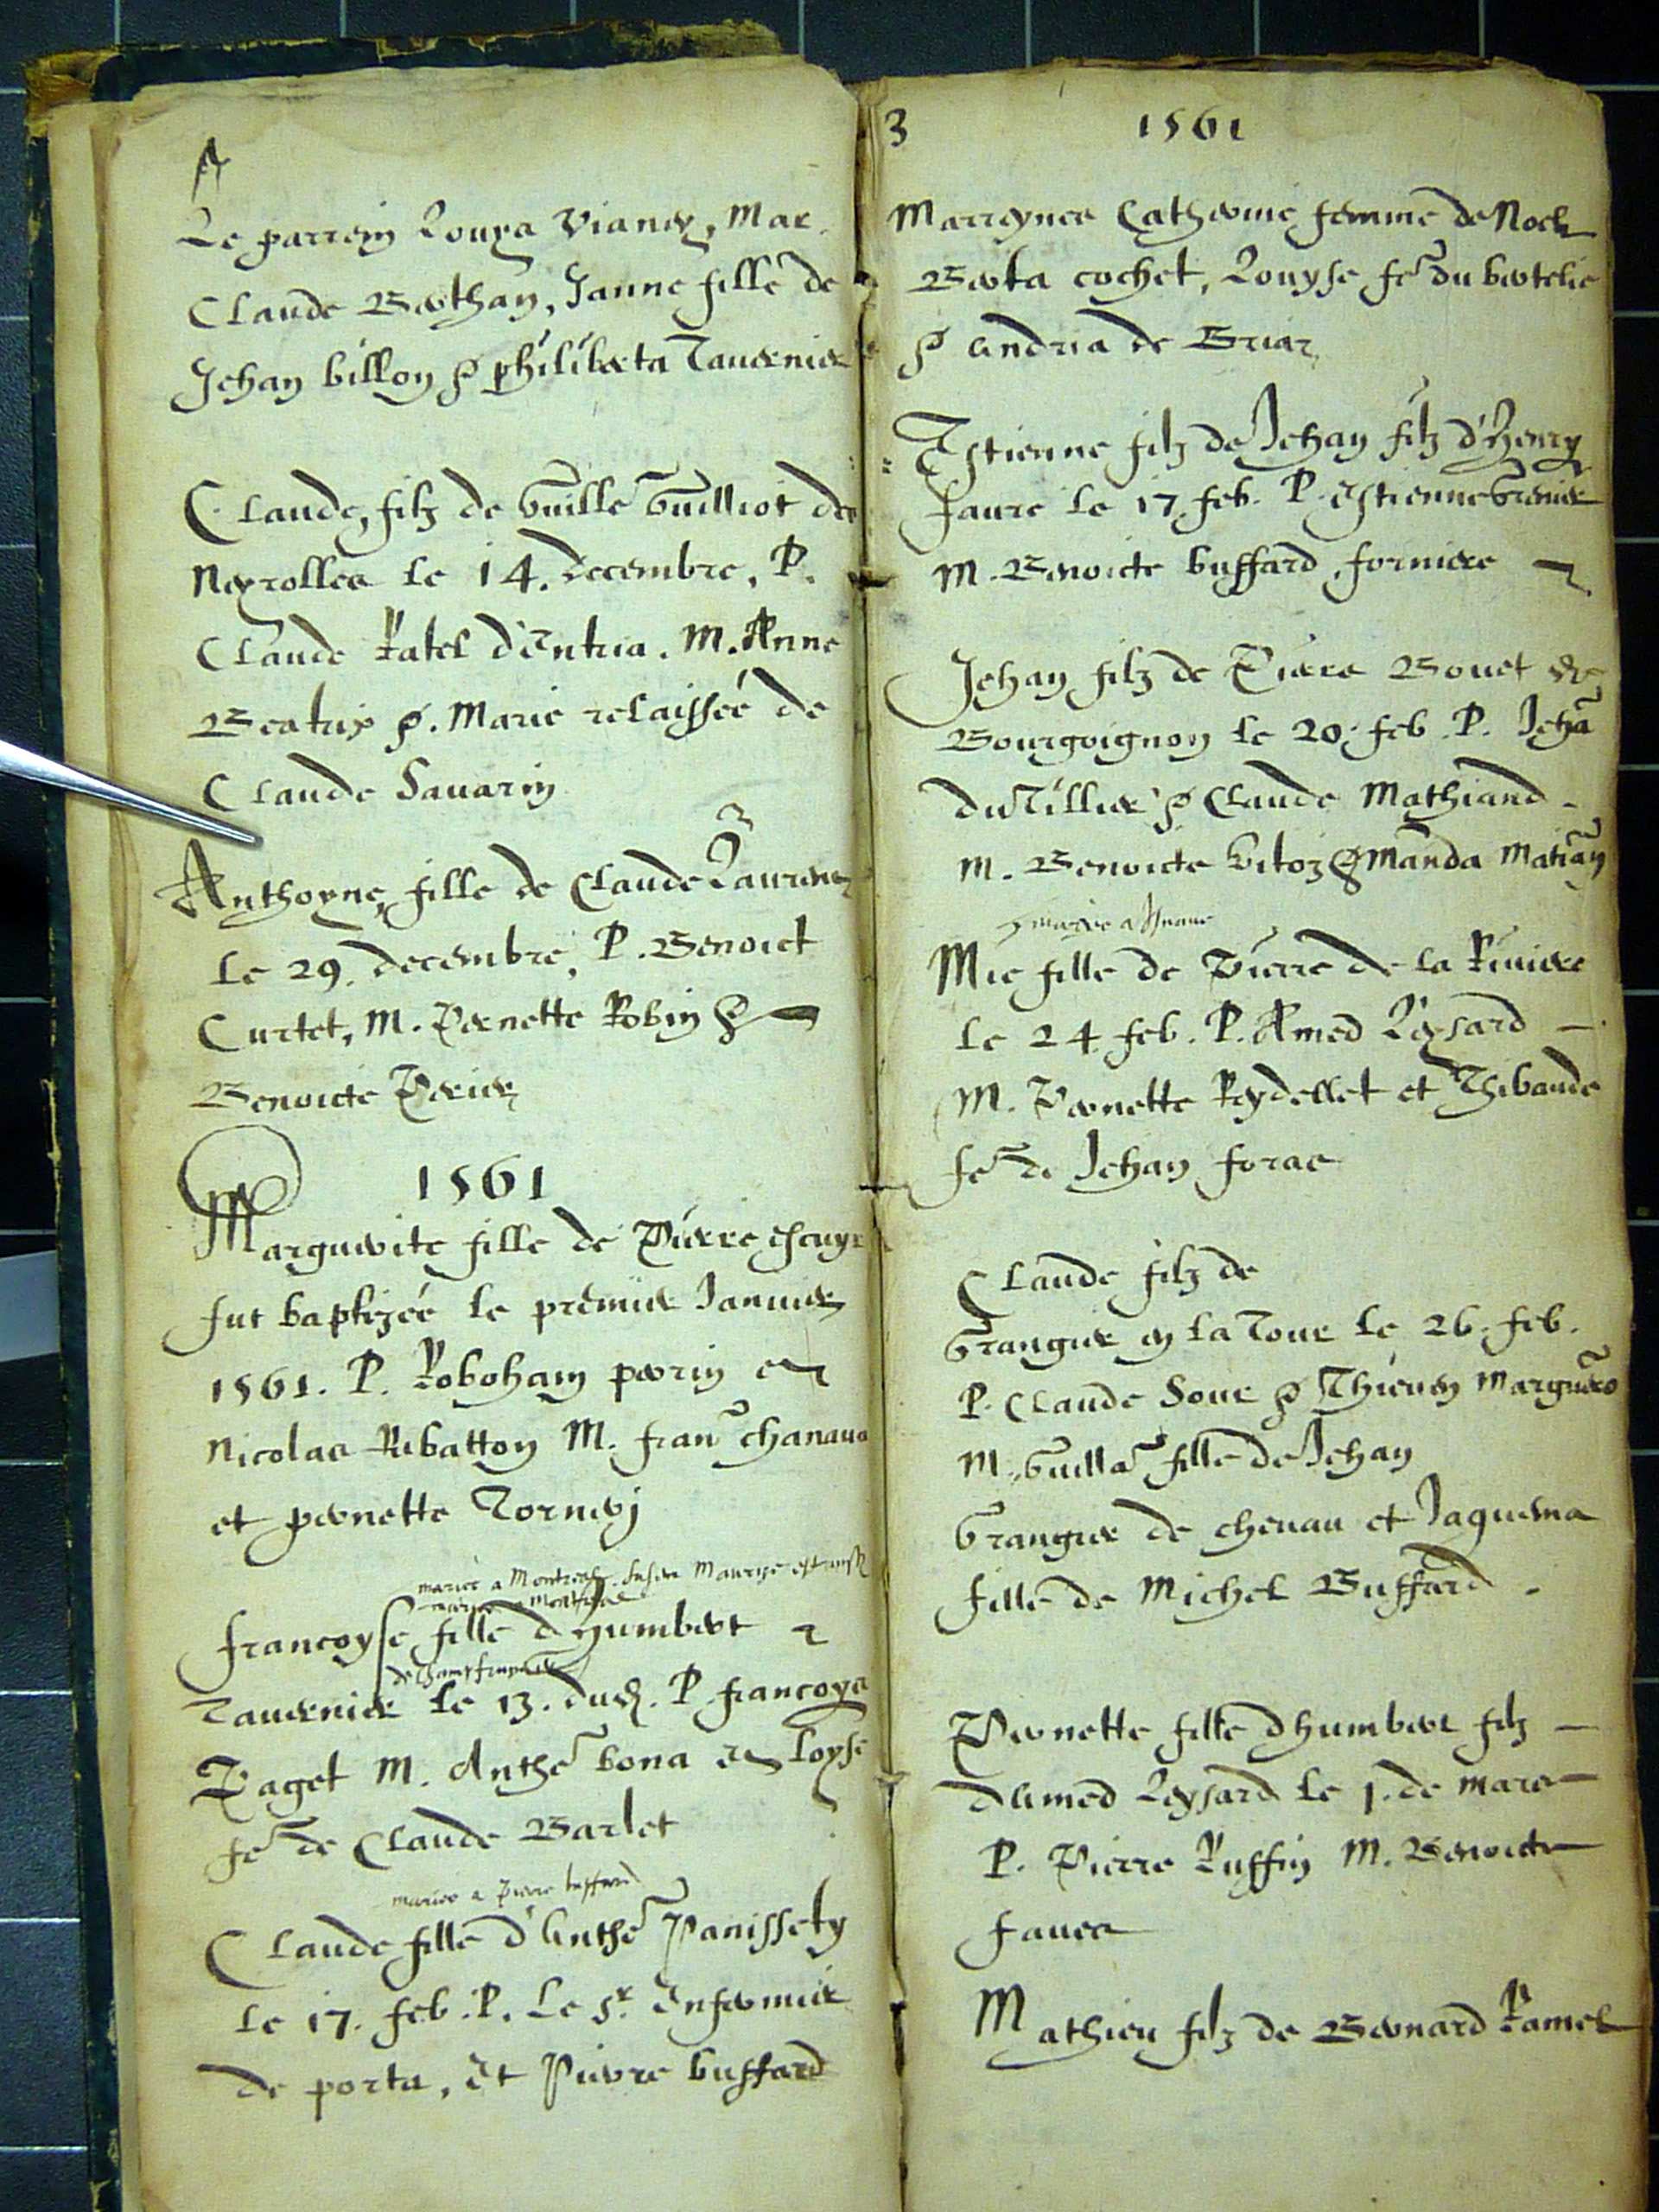 Le parrein Louys Vianey, Mar.
Claude Berthan, Janne fille de
Jehan billon & philiberta Tavernier
Claude, filz de Guille Guilliot des
Neyrolles le 14. decembre, P.
Claude Ratel d'Entria. M. Anne
Beatrix &. Marie relaissée de
Claude Savarin
Anthoyne, fille de Claude Laurent
le 29. decembre, P. Benoict
Curtet, M. Pernette Robin &
Benoicte Perier
1561
Marguerite fille de Pierre escuyr
fut baptizée le premier Januier
1561. P. Roboham perrin et
Nicolas Rubatton M. fran chanaua
et pernette Tornery
mariée a Montreal
francoyse fille d'Humbert
Tavernier le 13. dud. P. francoys
Paget M. Anthe bona et Loyse
fe de Claude Barlet
mariee a Pierre buffard
Claude fille d'Anthe Panissety
le 17. feb. P. Le sr. Enfermier
de porta, Et Pierre buffard
3 1561
Marreynes Catherine femme de Noel
Berta cochet, Louyse fe du bertelie
& Andria de Briar
Estienne filz de Jehan filz d'Henry
faure le 17. feb. P. estienne Grenier
M. Benoicte buffard, forniere
Jehan filz de Pierre Bouet de
Bourgoignon le 20. feb. P. Jehã
du Tillier & Claude Mathiand
M. Benoicte Vitoz & Manda Matian
mariee a
Mie fille de Pierre de la Riuiere
le 24. feb. P. Amed Leysard
M. Pernette Reydellet et Thibaude
fe de Jehan foras
Claude filz de
Grangier en la Tour le 26. feb.
P. Claude Sour & Thieuen Marguero
M. Guilla fille de Jehan
Grangier de cheuau et Jaquema
fille de Michel Buffard.
Pernette fille d'humbert filz
d'Amed Leysard le 1. de mars
P. Pierre Ruffin M. Benoicte
faure
Mathieu filz de Bernard Ramel